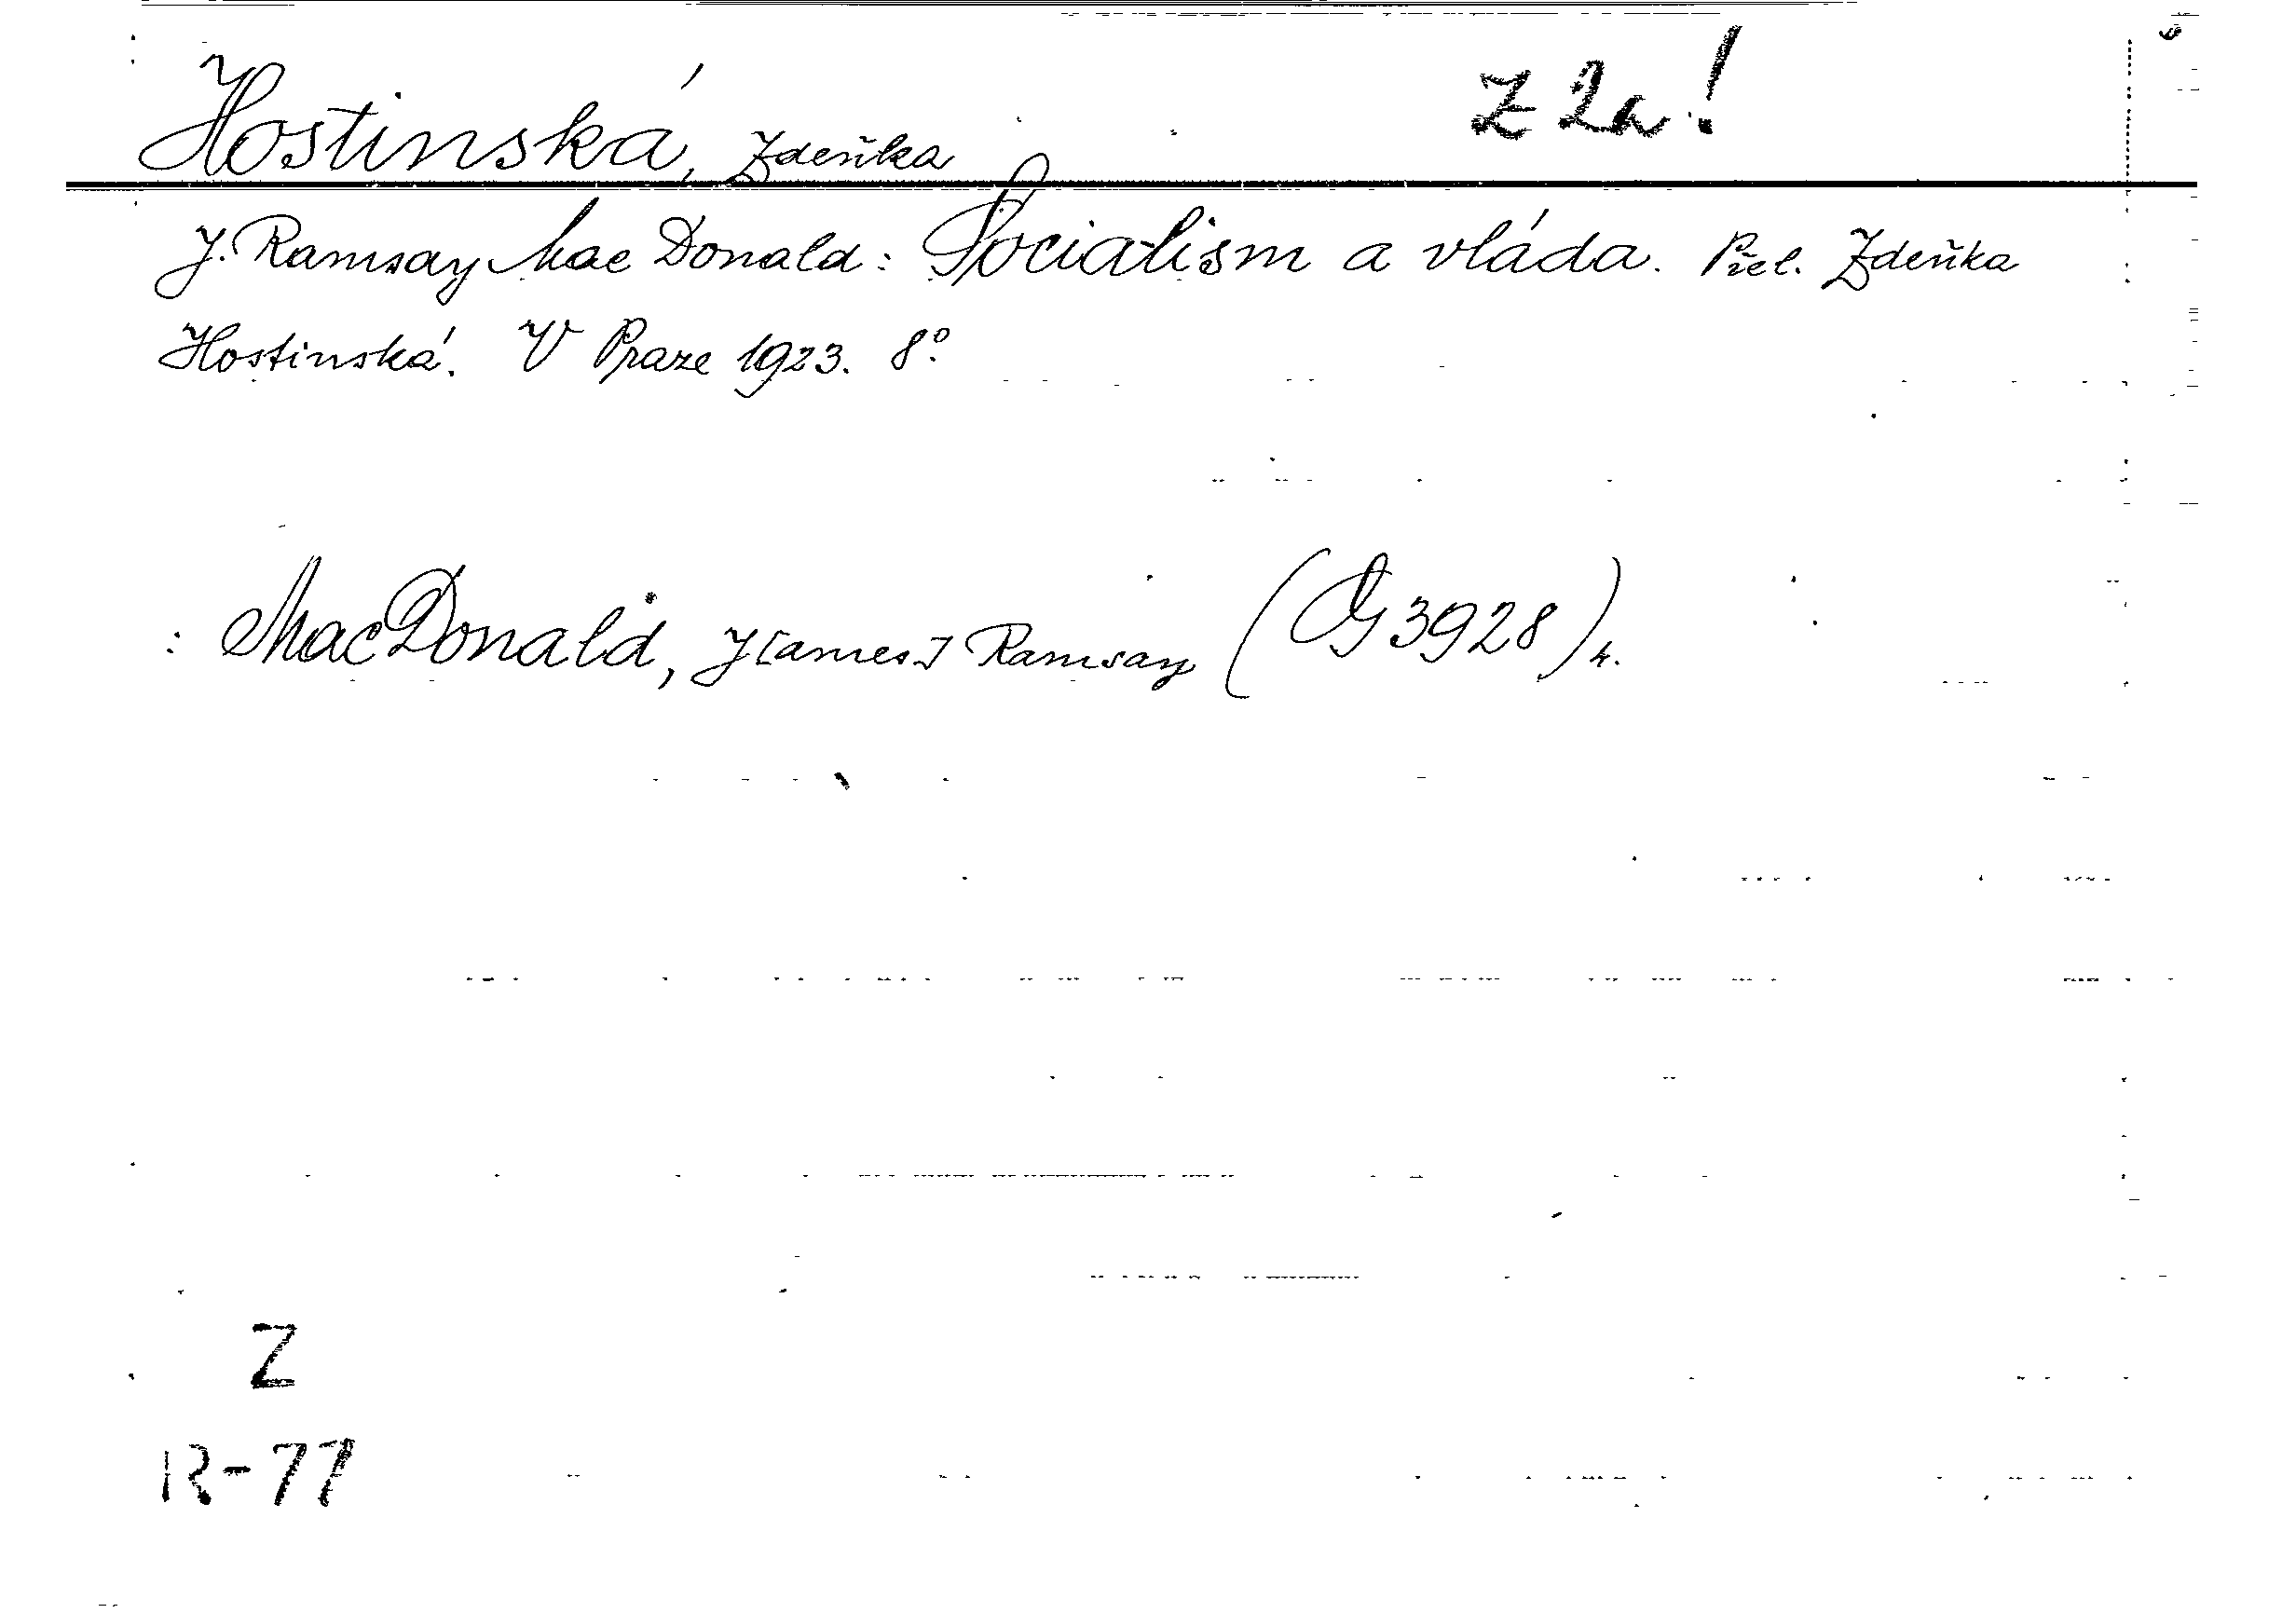 Hostinská, Zdeňka Z 2a!
J. Ramsay Mac Donald: Socialism a vláda. Přel. Zdeňka
Hostinská. V Praze 1923. 8°.
: MacDonald, J[ames] Ramsay (G 3928) h.
Z
R-77